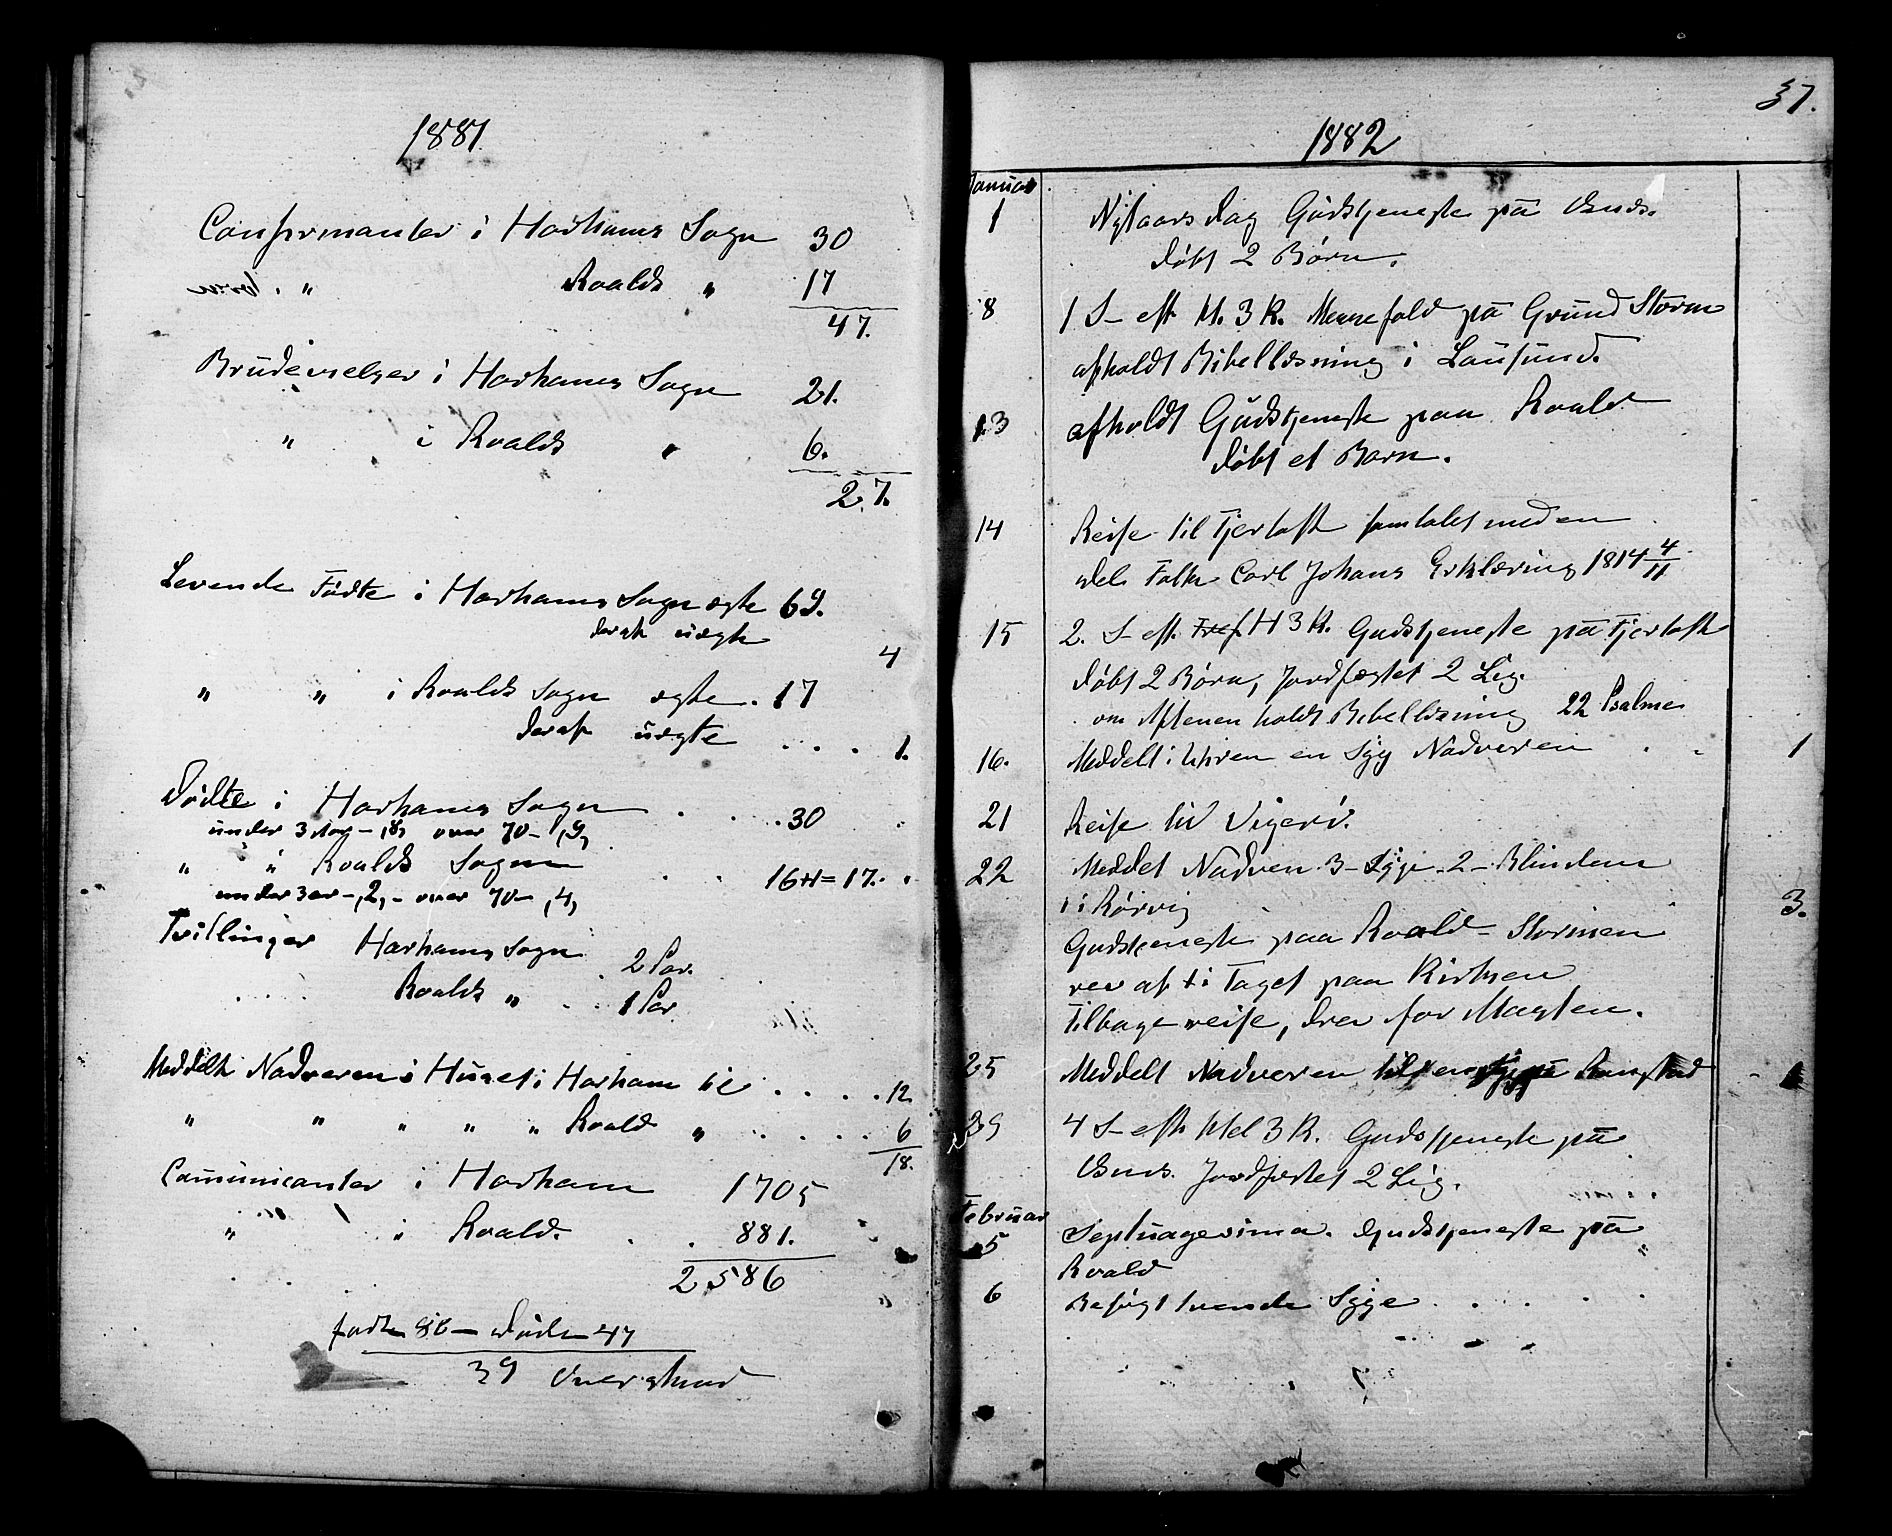 1881
Confirmanter i Harhams Sogn 30
" Roalds " 17
47.
Brudevielser i Harhams Sogn 21.
" i Roalds " 6.
27.
Levende Fødte i Harhams Sogn ægte 69.
deraf uægte
4
" " i Roalds Sogn ægte . 17
deraf uægte . . . 1.
Dødte i Harhams Sogn . . . 30
under 3 Aar - ,8, over 70 - ,9,
" " Roalds Sogn . . 16+1=17.
under 3 ar - ,2, - over 70 - ,4,
Tvillinger Harhams Sogn . 2 Par.
Roalds " . . 1 Par
Meddelt Nadveren i Huset i Harham til . . . . 12
" " " " " Roald " . . . . 6
18.
Comunicanter i Harham 1705
" i Roald . . 881.
2586
fødte 86 - døde 47
39 Overskud
37.
1882
Januar
1 Nytaarsdag Gudstjeneste på
døbt 2 Børn.
8 1 S- eft. H. 3 K. Mennefald på Grund Storm
afholdt Bibellæsning i Lausund.
13 afholdt Gudstjeneste paa Roald
døbt et Barn.
14 Reise til Fjertoft samtalet med en
del Folk Carl Johans Erklæring 1814 4/11
15 2. S- eft. H 3 K. Gudstjeneste på Fjertoft
døbt 2 Børn, Jordfæstet 2 Lig.
om Aftenen holdt Bibellæsning 22 Psalme
16. Meddelt i Ulvren en Syg Nadveren . - 1
21 Reise til Vigerö.
22 Meddet Nadven 3 - Syge - 2 - Blindem
1 i Rørvig 3.
Gudstjeneste paa Roald - Stormen
rev af ti Taget paa Kirken
Tilbage reise, drev for Masten.
25 Meddelt Nadveren til en syg på Ramstad - 1
29 4 S- efth Hel 3 K. Gudstjeneste på
Jordfæstet 2 Lig.
Februar
5 Septuagesima. Gudstjeneste på
Roald
6 Besögt tvende Syge . . . . .